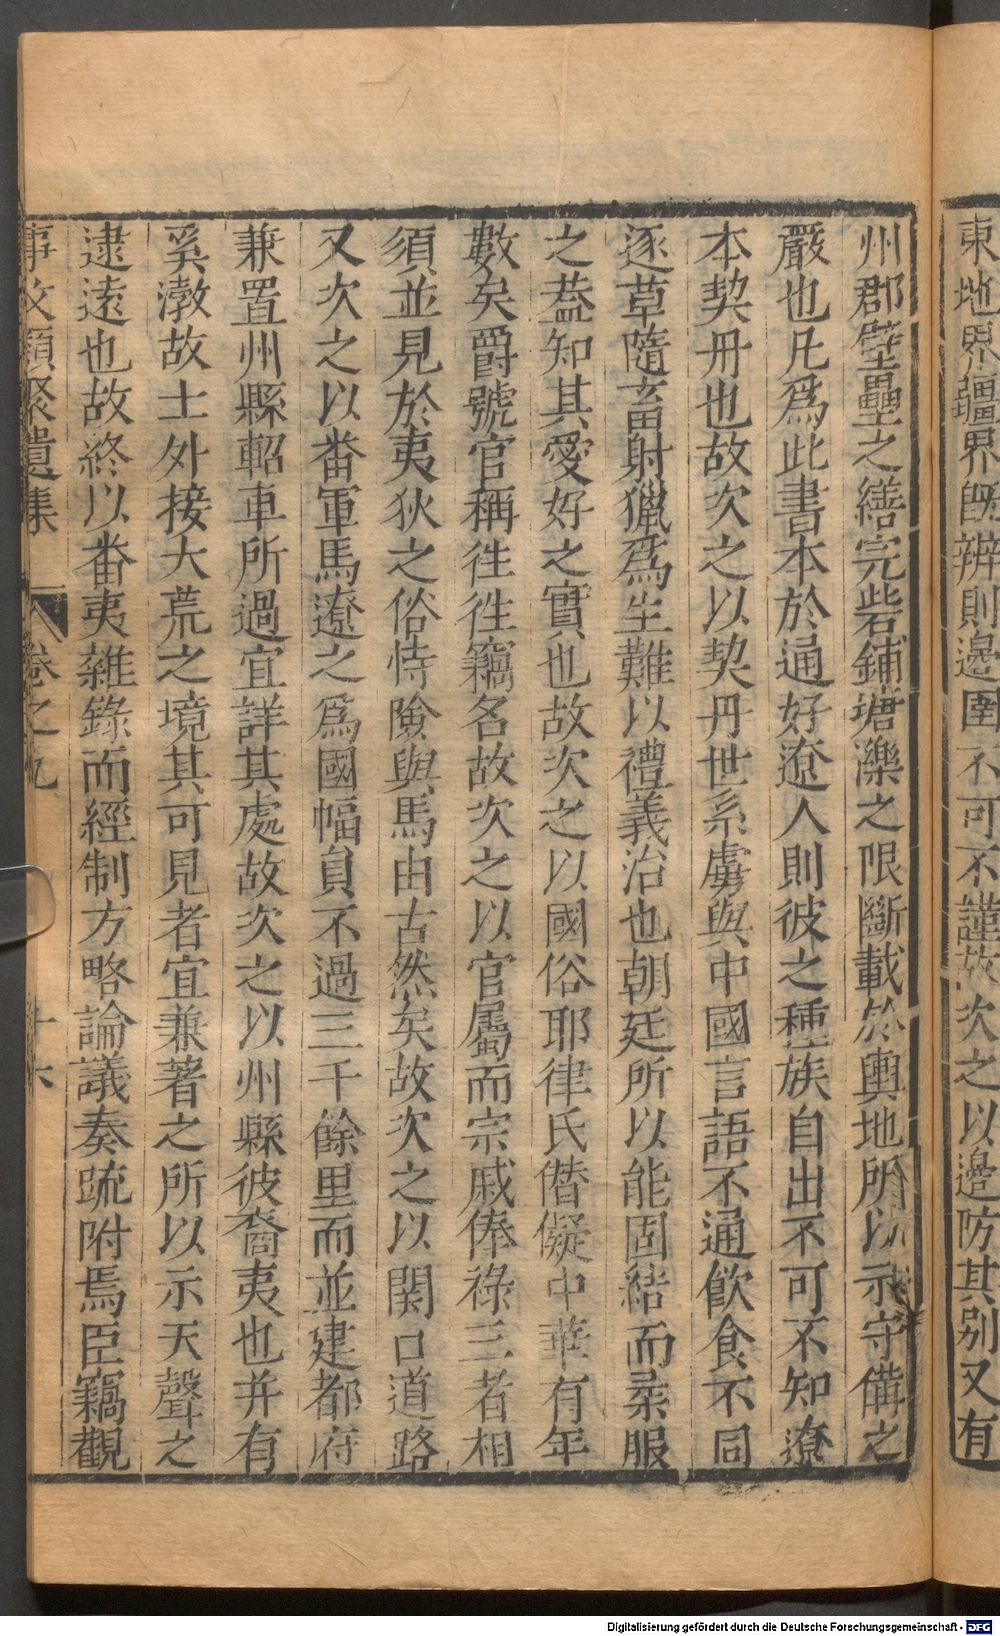 東地界疆界旣辨則邊圉不可不謹故次之以邊防其別又有
州郡壁壘之繕完砦鋪塘濼之限斷載於輿地所以示守備之
嚴也凡爲此書本於通好遼人則彼之種族自出不可不知遼
本契丹也故次之以契丹世系虜與中國言語不通飲食不同
逐草隨畜射獵爲生難以禮義治也朝廷所以能固結而柔服
之葢知其愛好之實也故次之以國俗耶律氏僣儗中華有年
數矣爵號官稱徃徃竊名故次之以官屬而宗戚俸祿三者相
須並見於夷狄之俗恃險與馬由古然矣故次之以関口道路
又次之以畨軍馬遼之爲國幅員不過三千餘里而並建都府
兼置州縣軺車所過宜詳其處故次之以州縣彼裔夷也并有
奚渤故土外接大荒之境其可見者宜兼著之所以示天聲之
逮遠也故終以畨夷雜錄而經制方略論議奏疏附焉臣竊觀
事文類聚遺集 卷之九 十六
Digitalisierung gefördert durch die Deutsche Forschungsgemeinschaft - DFG